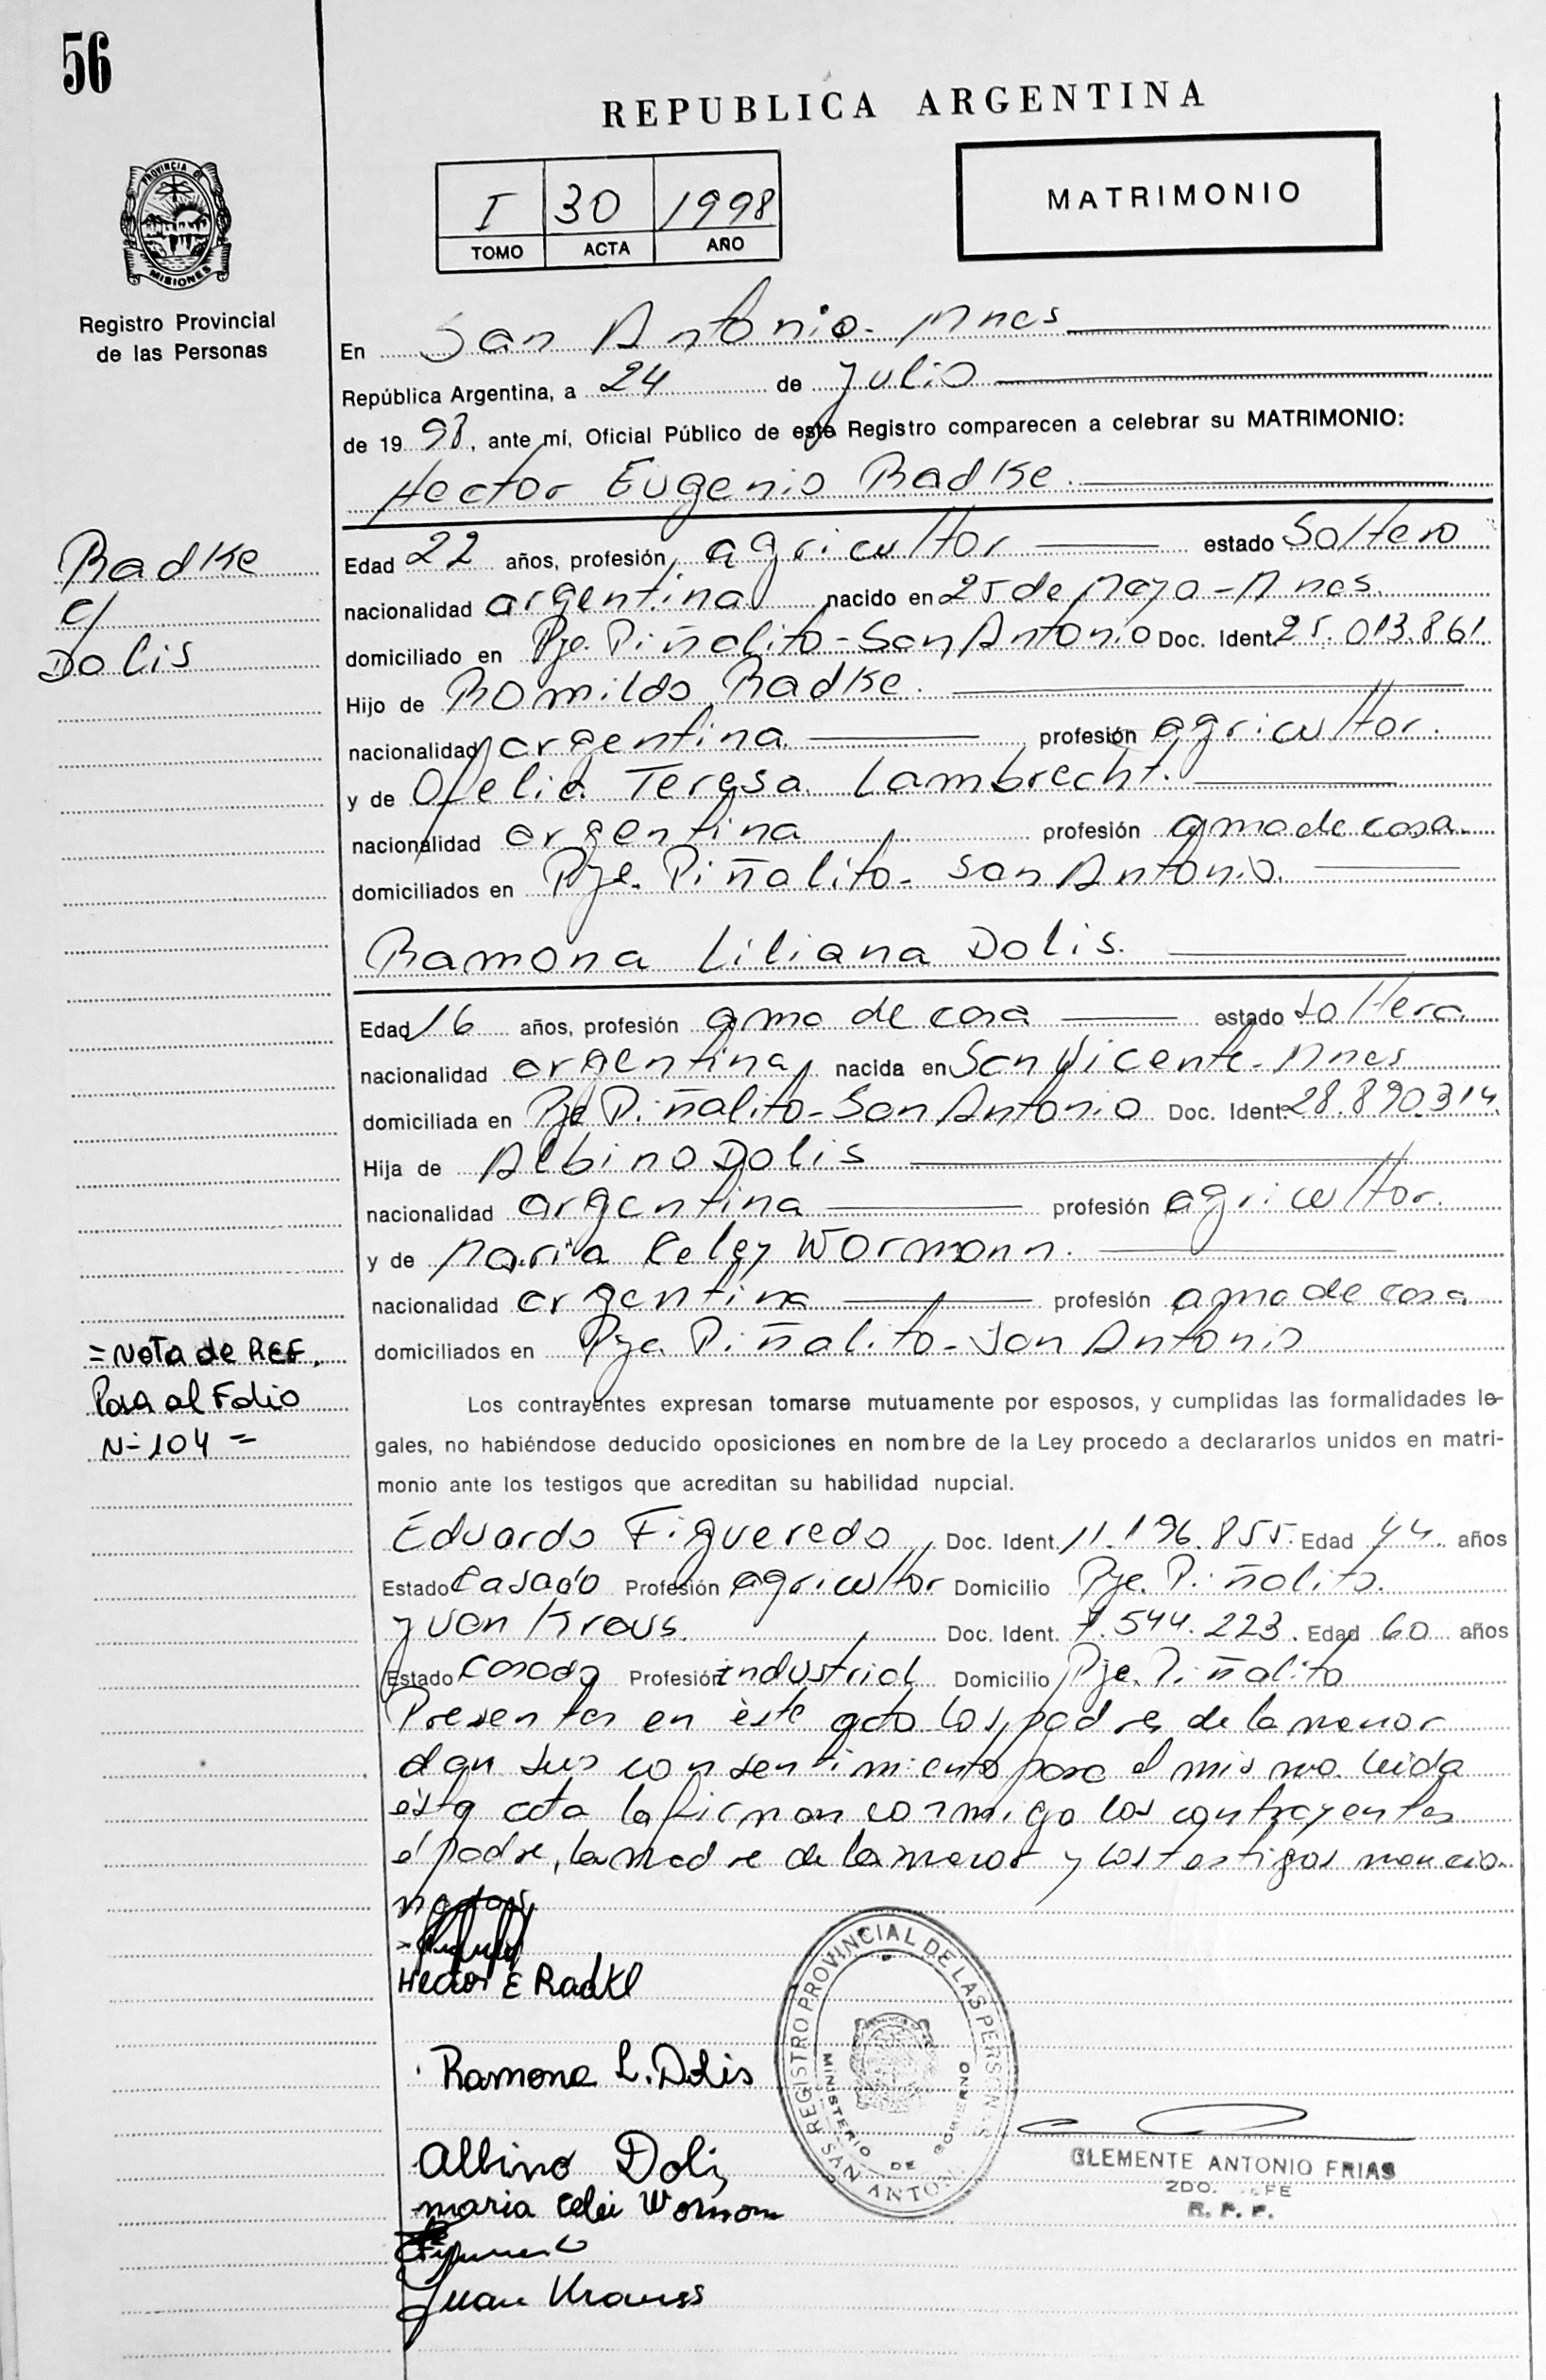 56
REPUBLICA ARGENTINA
PROVINCIA DE
MISIONES
Registro Provincial
de las Personas
I 30 1998
TOMO ACTA AÑO
MATRIMONIO
En San Antonio - Mnes
República Argentina, a 24 de Julio
de 19 98, ante mí, Oficial Público de este Registro comparecen a celebrar su MATRIMONIO:
Hector Eugenio Radke.
Radke
c/
Dolis
Edad 22 años, profesión agricultor estado Soltero
nacionalidad argentina nacido en 25 de Mayo - Mnes.
domiciliado en Pje. Piñalito - San Antonio Doc. Ident. 25.013.861.
Hijo de Romildo Radke.
nacionalidad argentina. profesión agricultor.
y de Ofelia Teresa Lambrecht.
nacionalidad argentina profesión ama de casa.
domiciliados en Pje. Piñalito - San Antonio.
Ramona Liliana Dolis.
Edad 16 años, profesión ama de casa estado soltera
nacionalidad argentina, nacida en San Vicente - Mnes
domiciliada en Pje Piñalito - San Antonio Doc. Ident. 28.890.314.
Hija de Albino Dolis
nacionalidad argentina profesión agricultor.
y de Maria Celey Wormann.
nacionalidad argentina profesión ama de casa
domiciliados en Pje. Piñalito - San Antonio
= Nota de REF.
Pasa al Folio
N- 104 =
Los contrayentes expresan tomarse mutuamente por esposos, y cumplidas las formalidades le-
gales, no habiéndose deducido oposiciones en nombre de la Ley procedo a declararlos unidos en matri-
monio ante los testigos que acreditan su habilidad nupcial.
Eduardo Figueredo, Doc. Ident. 11.196.855. Edad 44. años
Estado Casado Profesión agricultor Domicilio Pje. Piñalito.
Juan Kraus. Doc. Ident. 7.544.223. Edad 60 años
Estado Casado Profesión industrial Domicilio Pje. Piñalito
Presentes en éste acto los padres de la menor
dan sus consentimiento para el mismo. Leida
ésta acta la firman conmigo los contrayentes
el padre, la madre de la menor y los testigos mencio-
nados.
Hector E Radke
Ramona L. Dolis
Albino Dolis
maria Celei Wormann
Juan Krauss
REGISTRO PROVINCIAL DE LAS PERSONAS
MINISTERIO DE GOBIERNO
SAN ANTONIO
CLEMENTE ANTONIO FRIAS
2DO. JEFE
R. P. P.